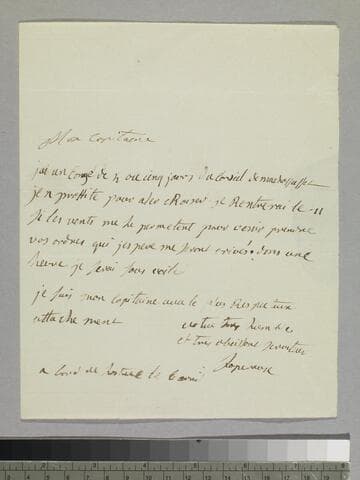 Mon capitaine
jai un congé de 4 ou cinq jours du conseil de
jen proffite pour aler chasser je rentrerai le 11
si les vents me le permetent pour venir prendre
vos ordres qui jespere me seront arivés dans une
heure je serai sous voile
je suis mon capitaine avec le plus respectueux
attachement votre tres humble
et tres obeissant serviteur
a bord de le 6 avril